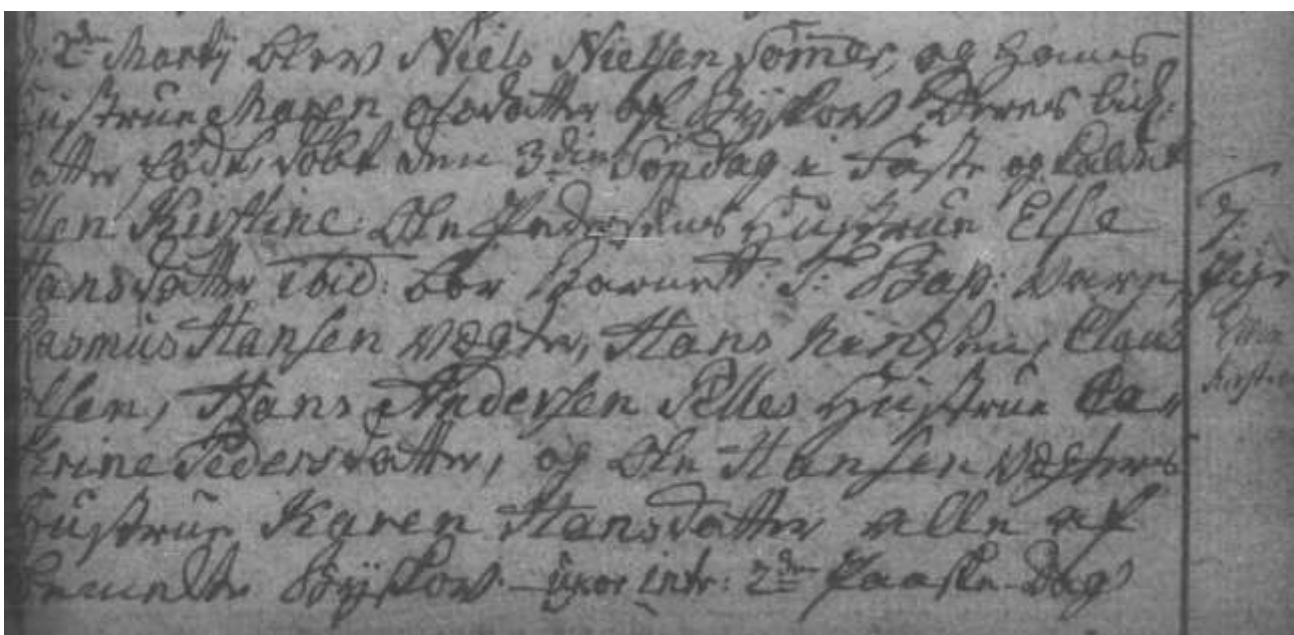 2den Martij blev Niels Nielsen Sømer, og hans
Hustrue Maren Olsdatter af Byskov Deres
datter født, døbt den 3die Søndag i Faste og kaldet
Ellen Kirstine. Ole Pedersens Hustrue Else
Hansdatter ibid: bar Barnet: T: Bap: vare,
Rasmus Hansen Wægter, Hans Hendsen, Claus
Olsen, Hans Andersen Pelles Hustrue Ca
trine Pedersdatter, og Ole Hansen Wægters
Hustrue Karen Hansdatter alle af
bemeldte Byskov. uxor intr: 2den Paaske Dag
Pige
Ellen